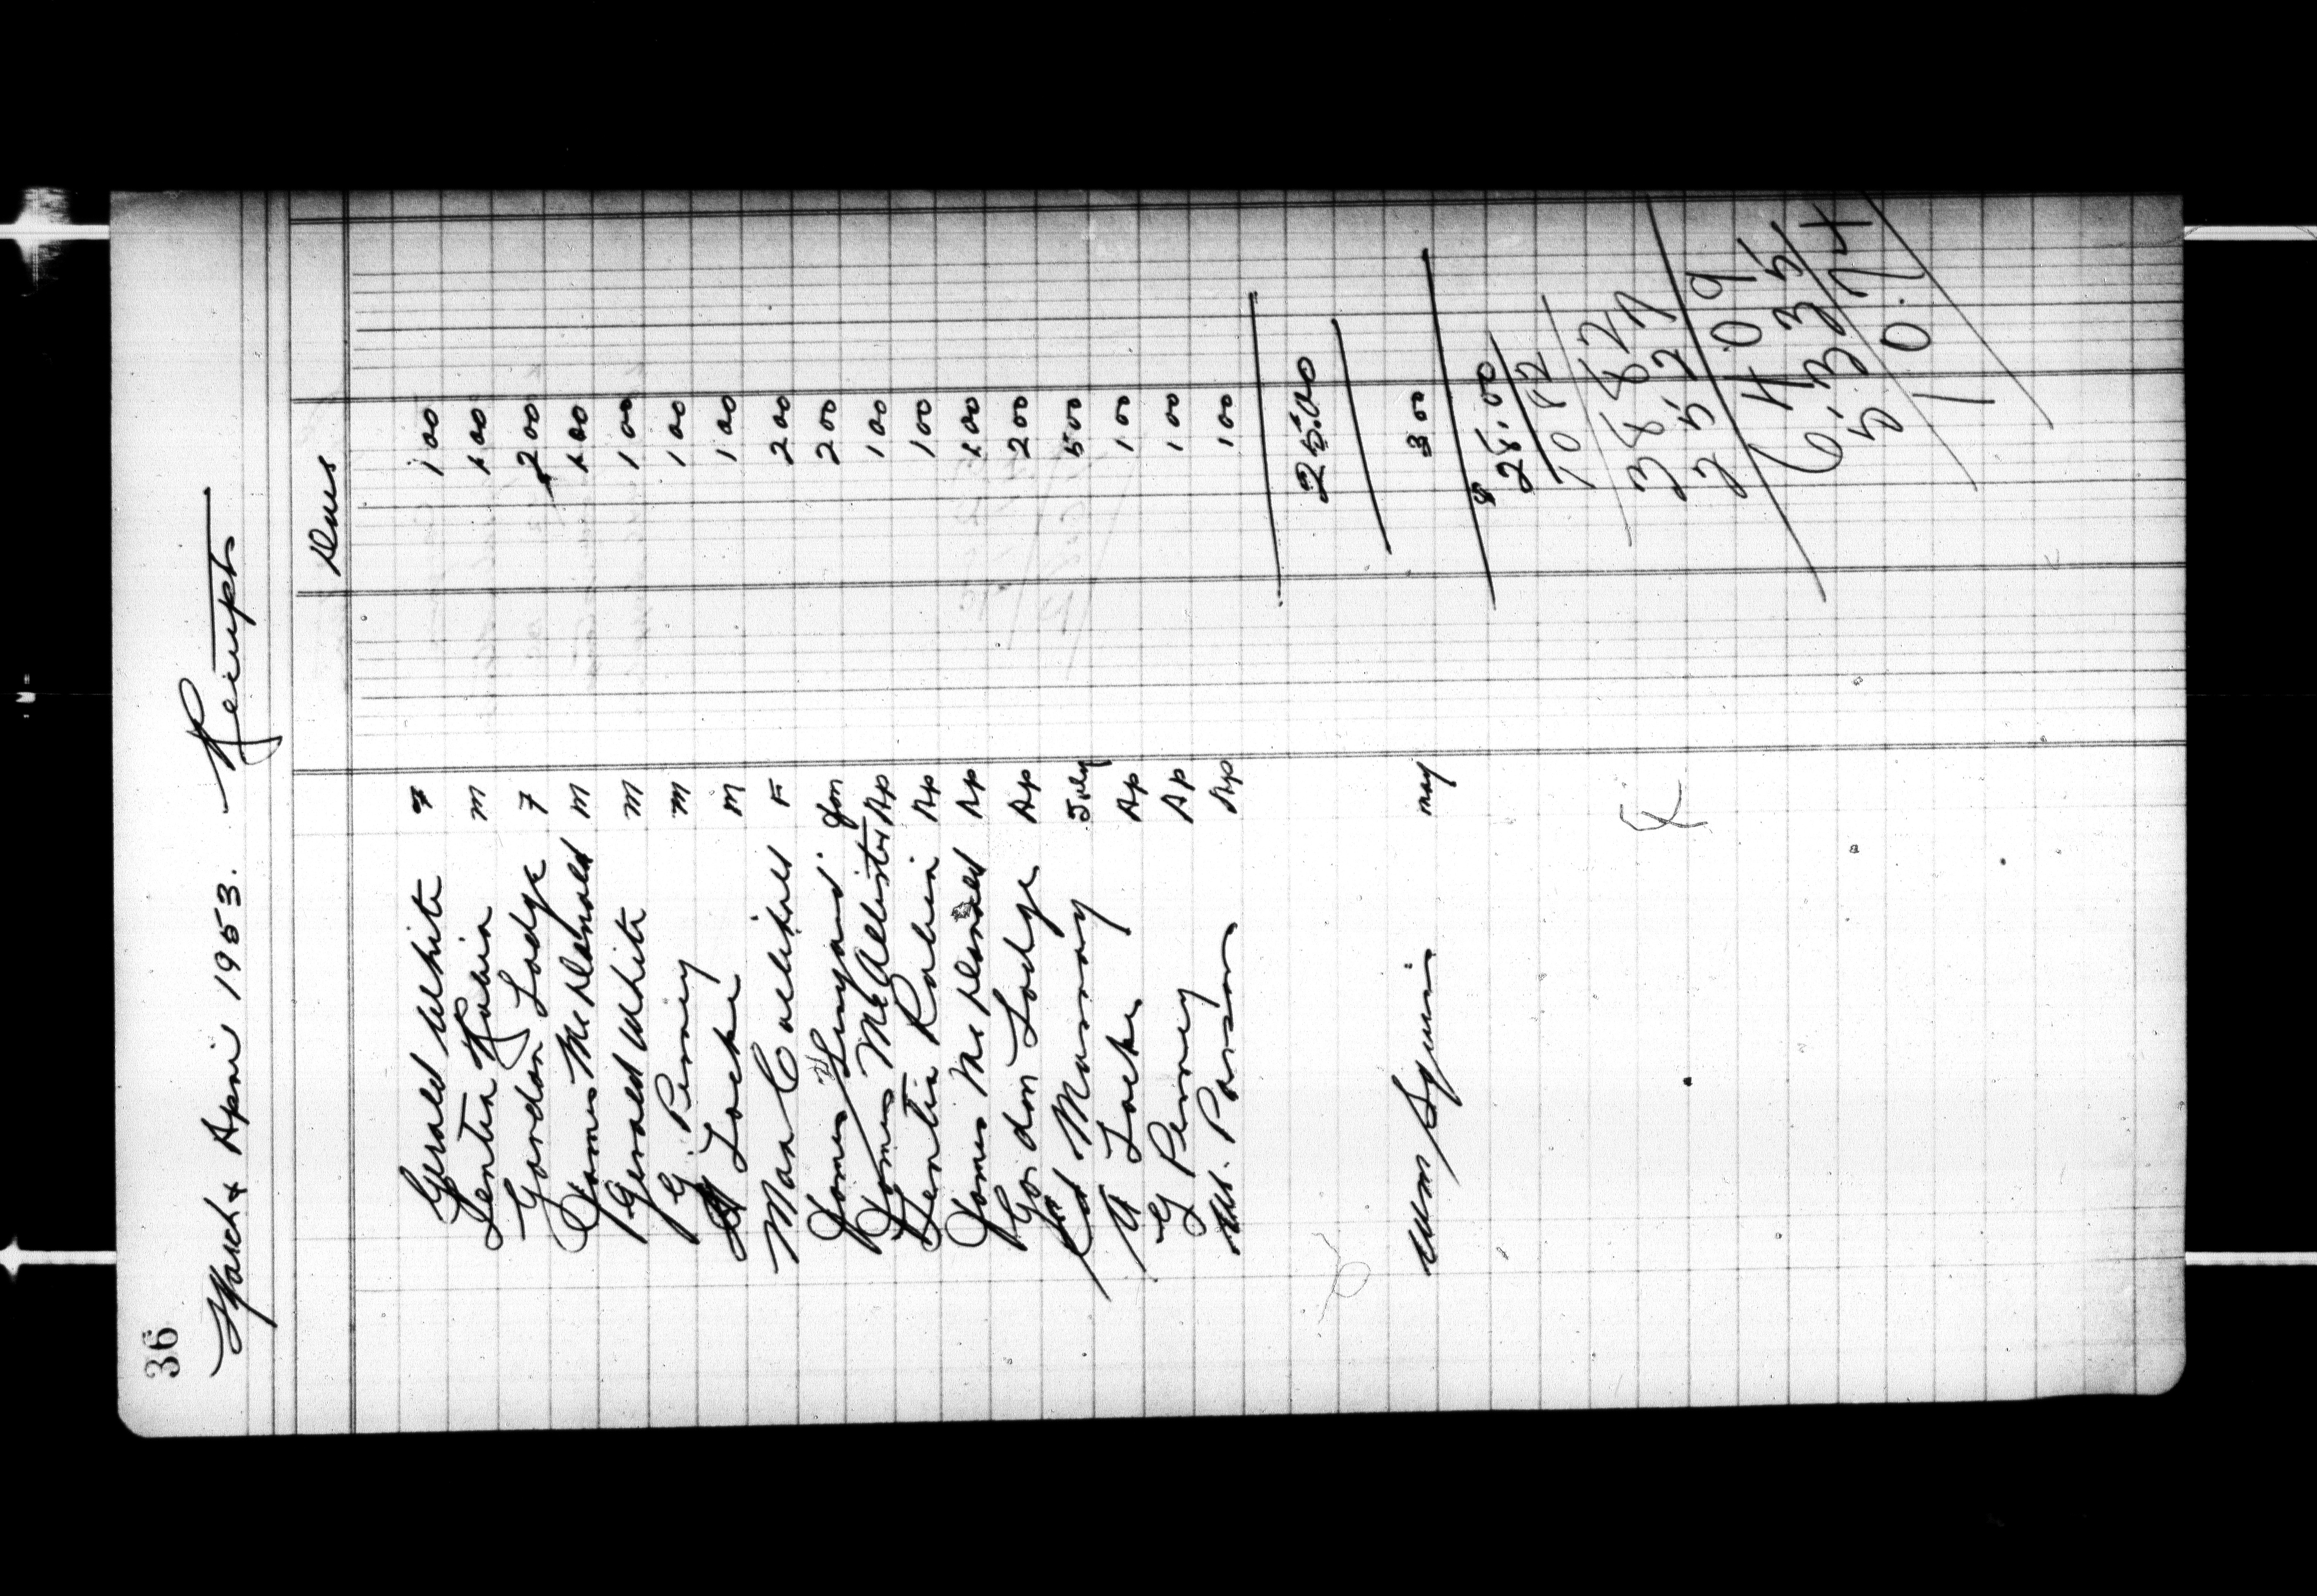 36
March & April 1953. Receipts
Dues
Gerald White F 1 00
Lentia Rubia M 1 00
Gordon Lodge F 2 00
James McDonald M 1 00
Gerald White M 1 00
G. Penney M 1 00
A Locke M 1 00
Max F 2 00
James Jan 2 00
James McAllister Ap 1 00
Lentia Rubia Ap 1 00
James McDonald Ap 1 00
Gordon Lodge Ap 2 00
Ed Murray July 5 00
A Locke Ap 1 00
G Penney Ap 1 00
Wm. Parsons Ap 1 00
25.00
Wm Squires may 3 00
$ 28.00
10 82
38 82
25.27
64 09
6.35
5.74
10.